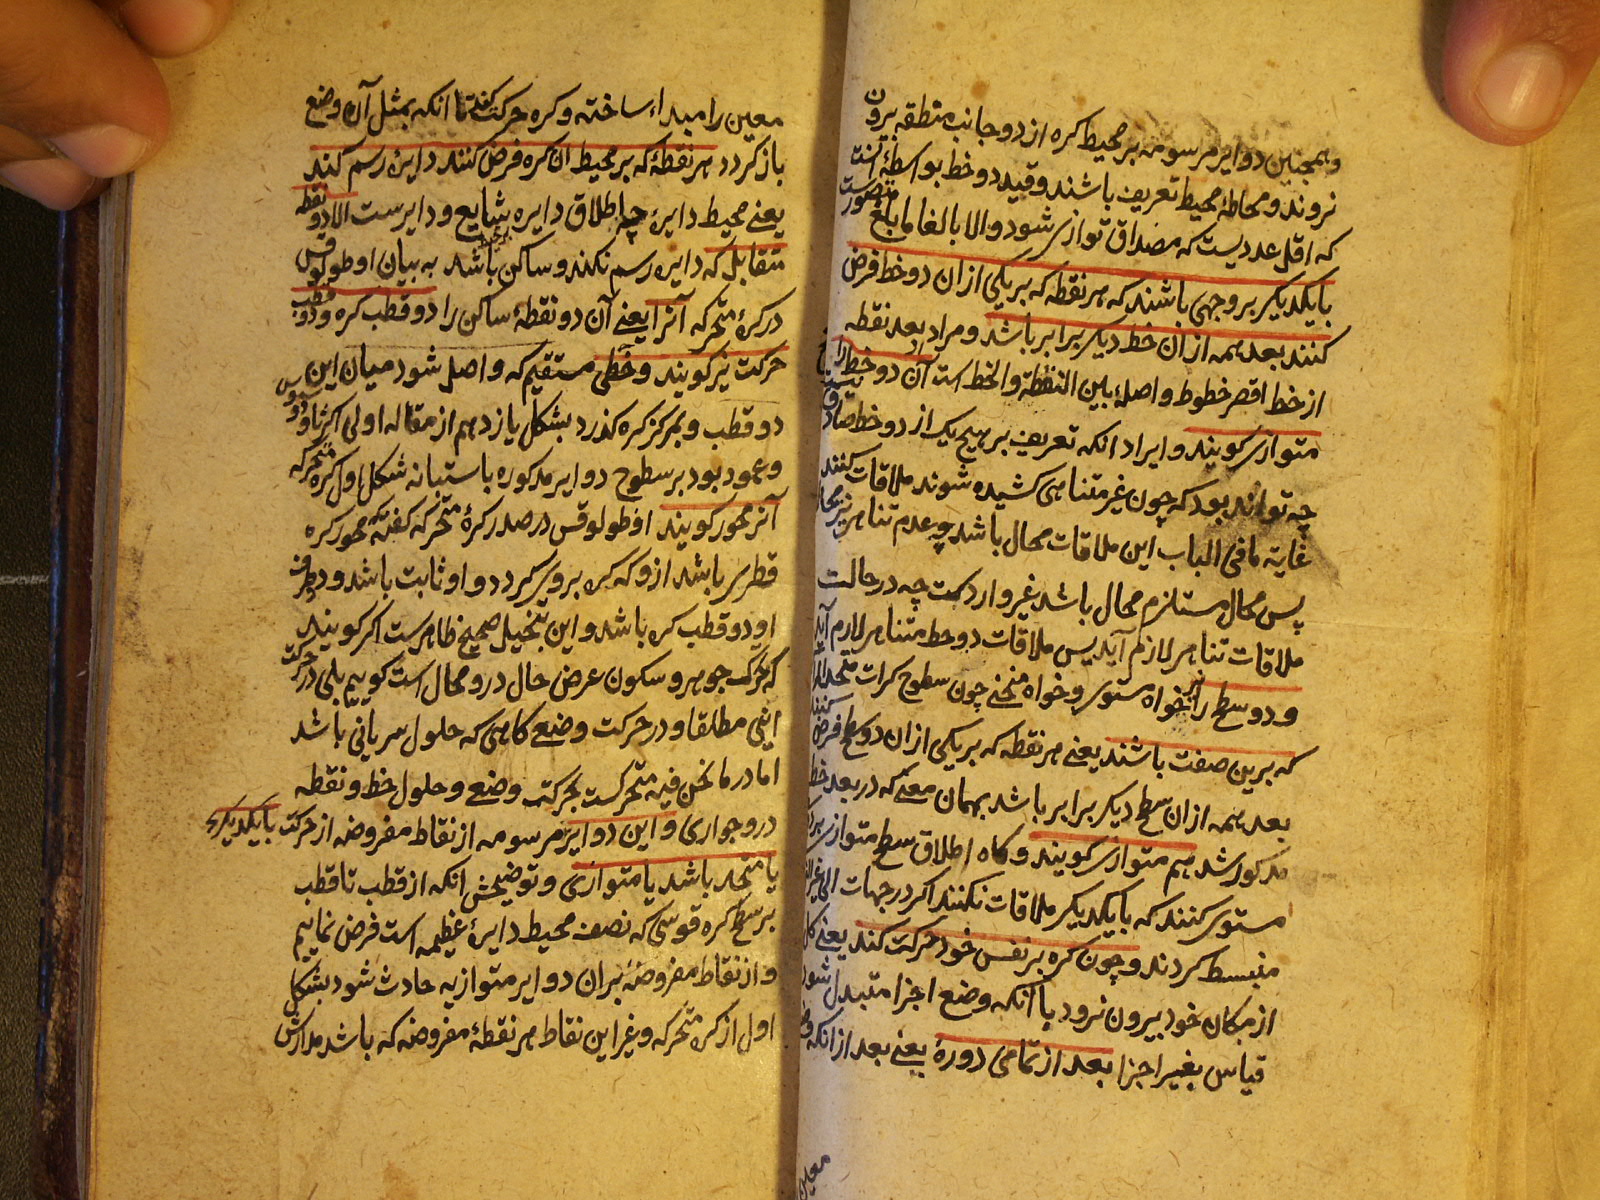 وهمچنین دوایر مرسومه بر محیط کره از دو جانب منطقه بیرون
نروند و محاطهٔ محیط تعریف باشند و قید دو خط بواسطهٔ آنست
که اقل عددیست که مصداق توازی متصورست شود و الا بالغا ما بلغ
بایکدیگر بر وجهی باشند که هر نقطه که بر یکی از ان دو خط فرض
کنند بعد همه از ان خط دیگر برابر باشد و مراد بعد نقطه
از خط اقصر خطوط واصلهٔ بین النقطة والخط است آن دو خط را
متوازی گویند و ایراد انکه تعریف بر هیچ یک از دو خط صادق نیست
چه تواند بود که چون غیر متناهی کشیده شوند ملاقات کنند
غایة مافی الباب این ملاقات محال باشد چه عدم تناهی نیز محال
پس محال مستلزم محال باشد غیر واردست چه در حالت
ملاقات تناهی لازم آید پس ملاقات دو خط متناهی لازم آید
و دو سطح را نیز خواه مستوی و خواه منحنی چون سطوح کرات
که برین صفت باشند یعنی هر نقطه که بر یکی از ان دو سطح فرض کنند
بعد همه از ان سطح دیگر برابر باشد بهمان معنی که در بعد خط
مذکور شد هم متوازی گویند و گاه اطلاق سطح متوازی بر
مستوی کنند که بایکدیگر ملاقات نکنند اگر در جهات الی غیر
منبسط کردند و چون کره بر نفس خود حرکت کند یعنی کل
از مکان خود بیرون نرود با آنکه وضع اجزا متبدل شود
قیاس بغیر اجزا بعد از تمامی دورهٔ یعنی بعد از انکه وضع
معین
معین را مبداء ساخته و کره حرکت کند تا انکه بمثل آن وضع
باز گردد هر نقطهٔ که بر محیط ان کره فرض کنند دایره رسم کند
یعنی محیط دایرهٔ چه اطلاق دایره شایع و دایرست الا دو نقطه
متقابل که دایره رسم نکند و ساکن باشد به بیان اوطولوقس
در کرهٔ متحرکه آنرا یعنی آن دو نقطهٔ ساکن را دو قطب کره و دو قطب
حرکت نیز گویند و خطی مستقیم که واصل شود میان این
دو قطب و بمرکز کره گذرد بشکل یازدهم از مقاله اولی اکر ثاودوسیوس
و عمود بود بر سطوح دوایر مذکوره باستبانه شکل اول کره متحرکه
آنرا محور گویند اوطولوقس در صدر کرهٔ متحرکه گفته که محور کره
قطری باشد ازو که کره بروی گردد و او ثابت باشد و دو طرف
او دو قطب کره باشد و این تخیل صحیح ظاهرست اگر گویند
که تحرک جوهر و سکون عرض حال درو محال است گوییم بلی در حرکت
اینی مطلقا و در حرکت وضعی گاهی که حلول سریانی باشد
اما در ما نحن فیه متحرکست بحرکت وضعی و حلول خط و نقطه
درو جواری و این دوایر مرسومه از نقاط مفروضه از حرکت بایکدیگر
یا متحد باشد یا متوازی و توضیحش انکه از قطب تا قطب
بر سطح کره قوسی که نصف محیط دایرهٔ عظیمه است فرض نماییم
و از نقاط مفروضه بران دوایر متوازیه حادث شود بشکل
اول از کره متحرکه و غیر این نقاط هر نقطهٔ مفروضه که باشد مدارش